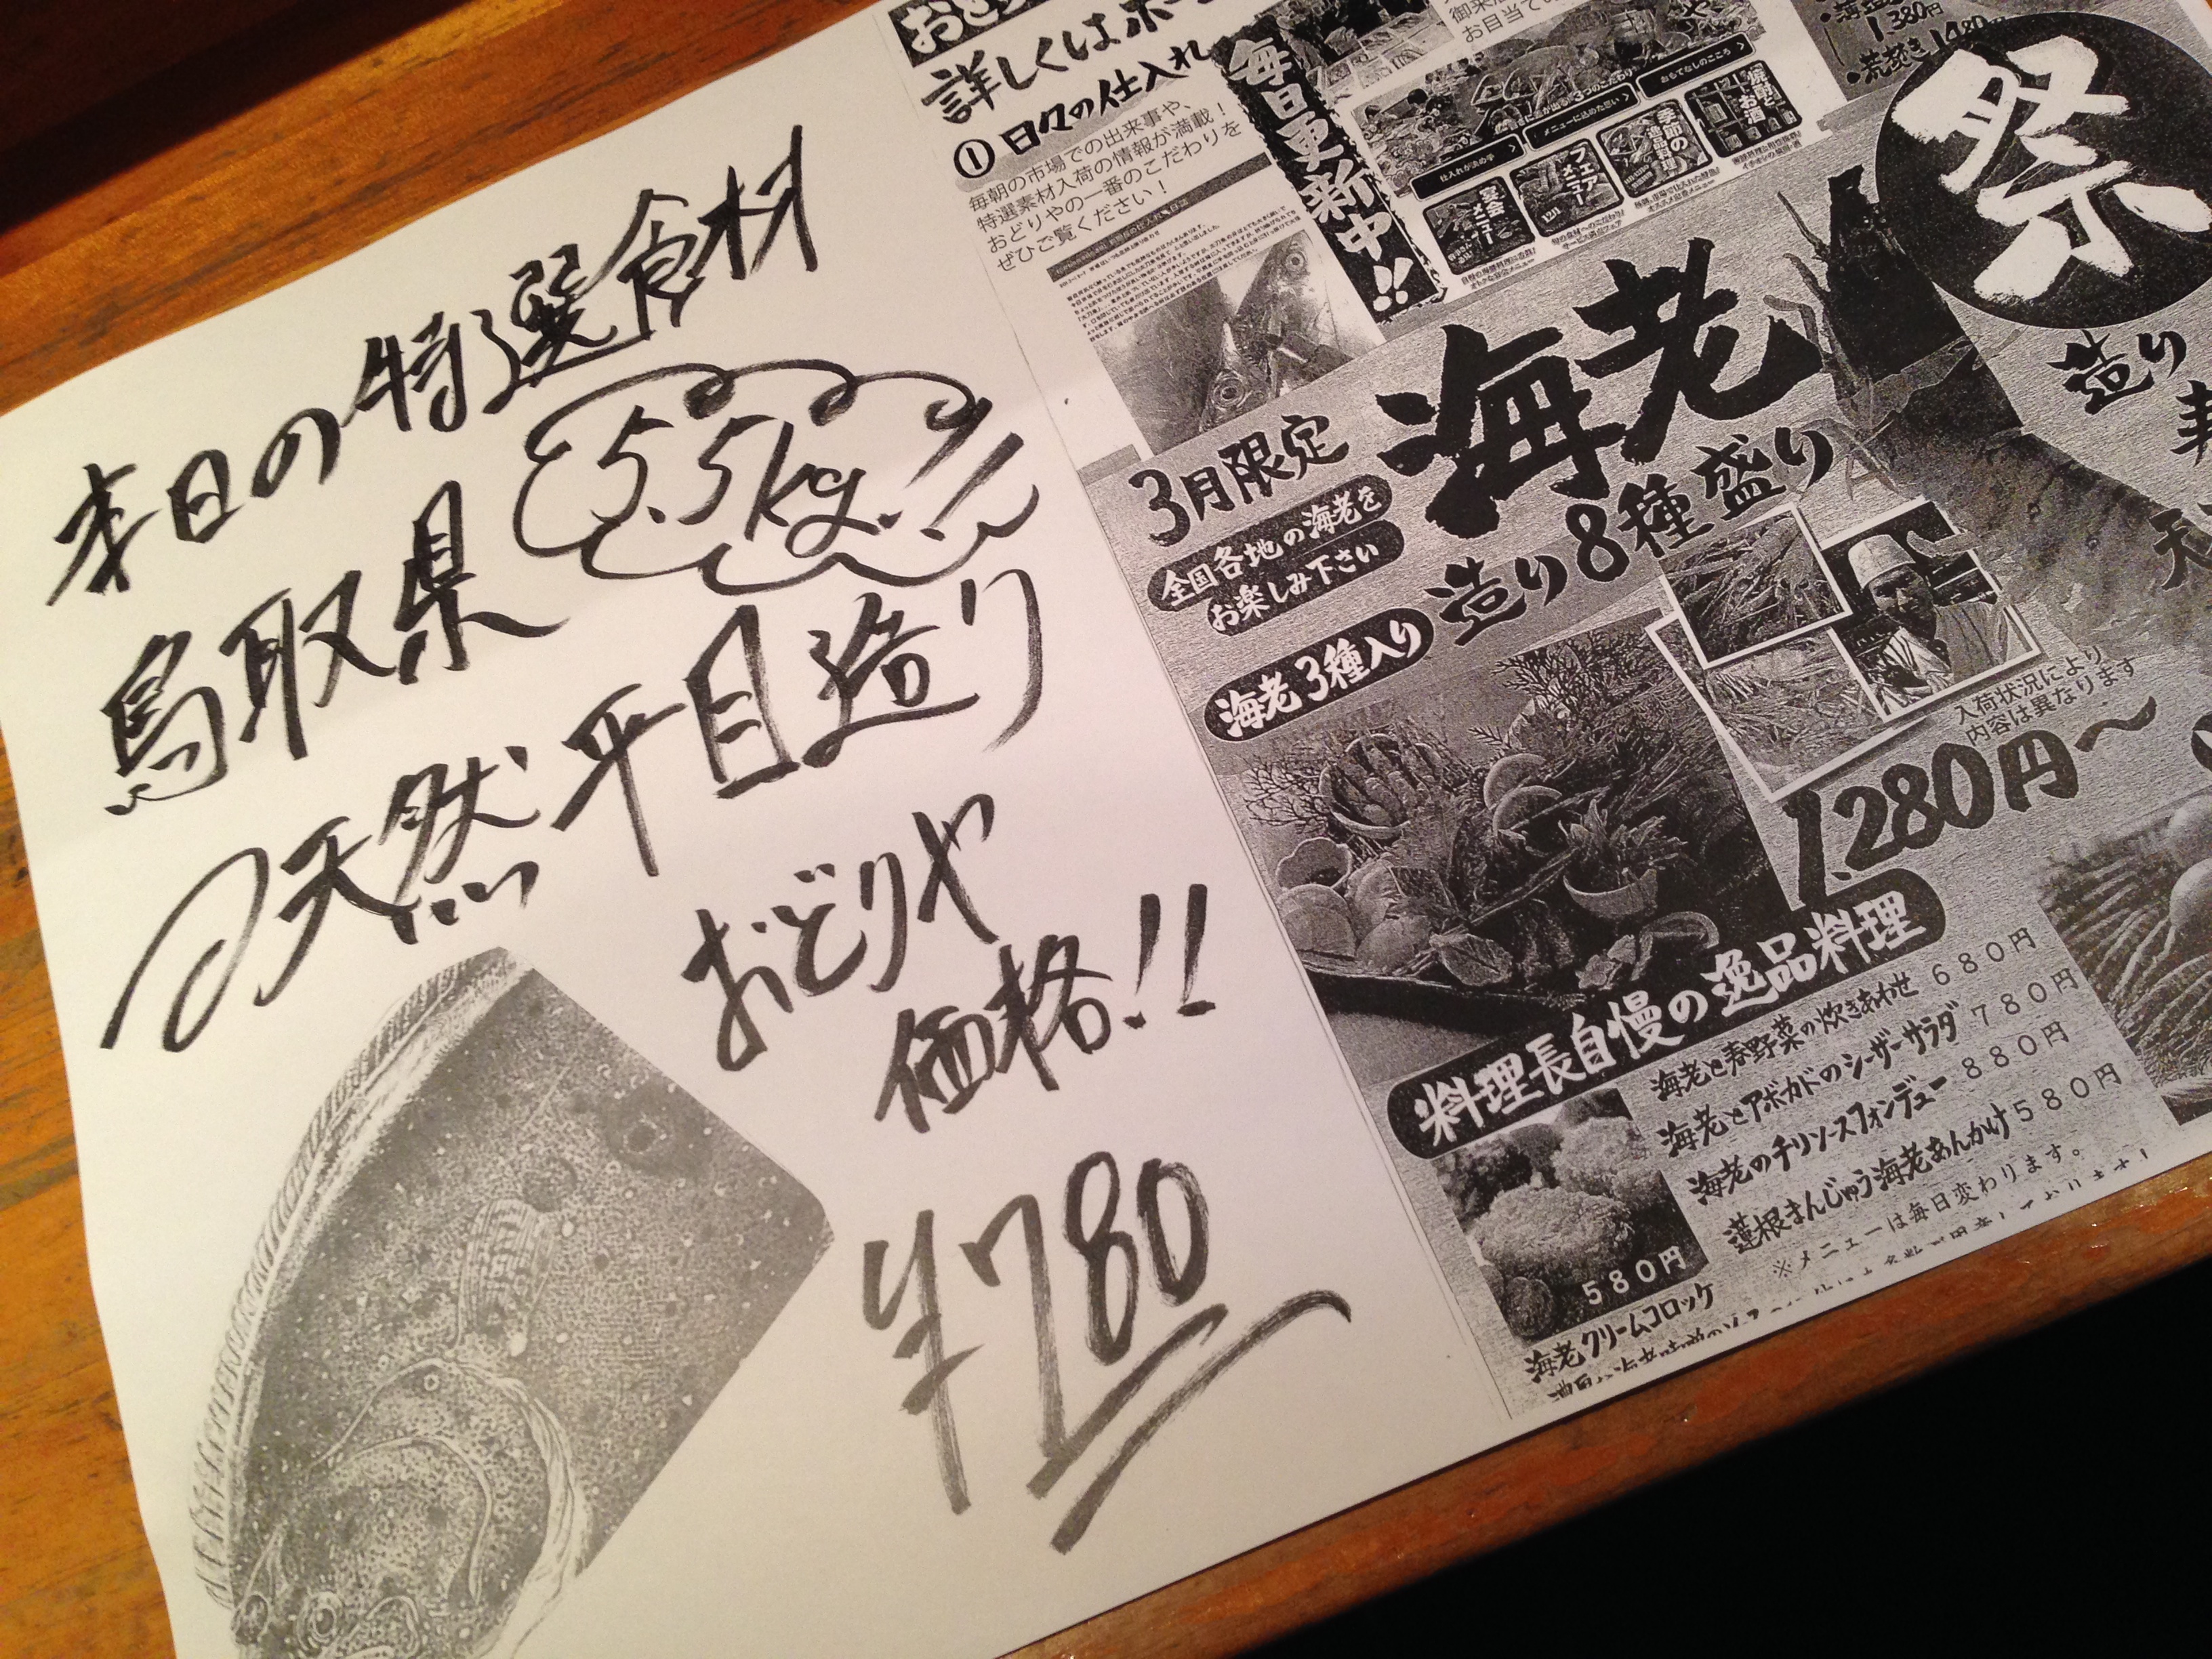 本日の特選食材
5.5kg!!
鳥取県
天然平目造り
おどりや
価格!!
¥780
詳しくはホー
①日々の仕入れ
毎朝の市場での出来事や、
特選素材入荷の情報が満載!
おどりやの一番のこだわりを
ぜひご覧ください!
毎日更新中!!
おもてなしのこころ
メニューに込めた思い
仕入れが決め手
宴会メニュー
フェアメニュー
季節の逸品料理
焼酎とお酒
1,380円
1,480円
祭
3月限定
海老
全国各地の海老を
お楽しみ下さい
造り8種盛り
海老3種入り
入荷状況により
内容は異なります
1,280円〜
造り
料理長自慢の逸品料理
海老と春野菜の炊きあわせ 680円
海老とアボカドのシーザーサラダ 780円
海老のチリソースフォンデュー 880円
蓮根まんじゅう海老あんかけ 580円
※メニューは毎日変わります。
580円
海老クリームコロッケ